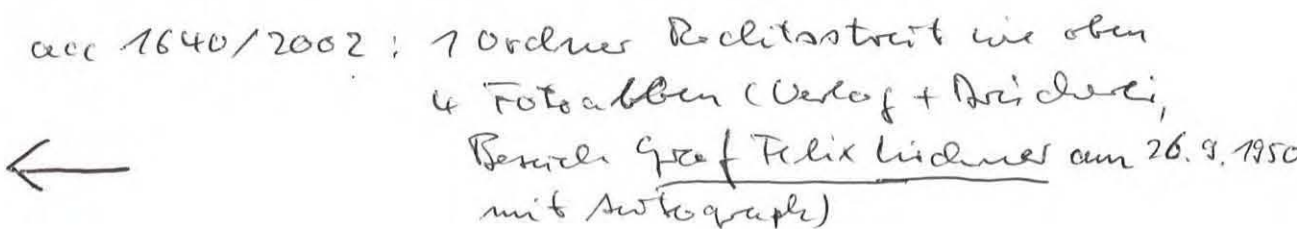 acc 1640/2002 : 1 Ordner Rechtsstreit wie oben
4 Fotoalben (Verlag + Druckerei,
Besuch Graf Felix Luckner am 26. 9. 1950
mit Autograph)